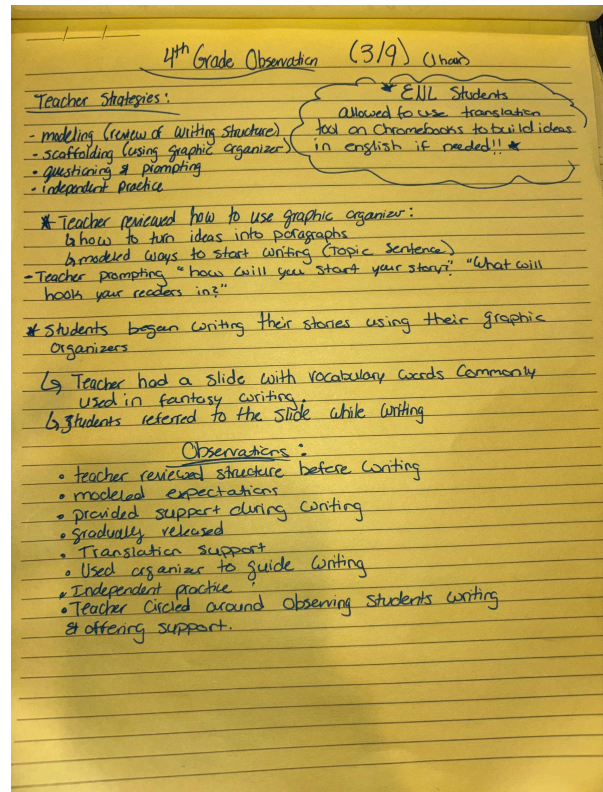 4th Grade Observation (3/9) (1 hour)
Teacher Strategies:
- modeling (review of writing structure)
- scaffolding (using graphic organizer)
- questioning & prompting
- independent practice
* ENL Students
allowed to use translation
tool on Chromebooks to build ideas
in english if needed!! *
* Teacher reviewed how to use graphic organizer:
↳ how to turn ideas into paragraphs
↳ modeled ways to start writing (Topic Sentence)
- Teacher prompting "how will you start your story?" "What will
hook your readers in?"
* Students began writing their stories using their graphic
organizers
↳ Teacher had a slide with vocabulary words commonly
used in fantasy writing.
↳ Students referred to the slide while writing
Observations:
• teacher reviewed structure before writing
• modeled expectations
• provided support during writing
• gradually released
• Translation support
• Used organizer to guide writing
• Independent practice
• Teacher circled around observing students writing
& offering support.